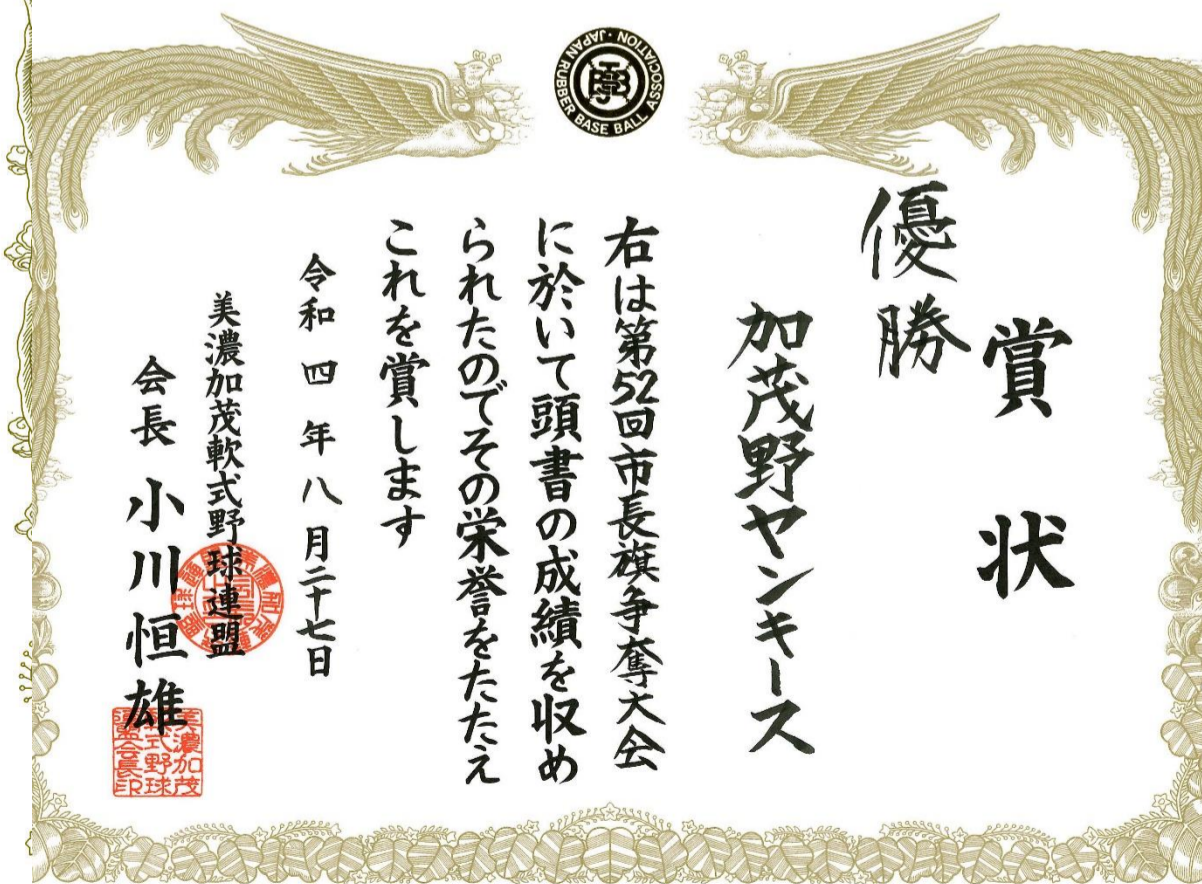 JAPAN RUBBER BASE BALL ASSOCIATION
賞状
優勝
加茂野ヤンキース
右は第52回市長旗争奪大会
に於いて頭書の成績を収め
られたのでその栄誉をたたえ
これを賞します
令和四年八月二十七日
美濃加茂軟式野球連盟
会長 小川恒雄
美濃加茂
軟式野球
連盟会長印